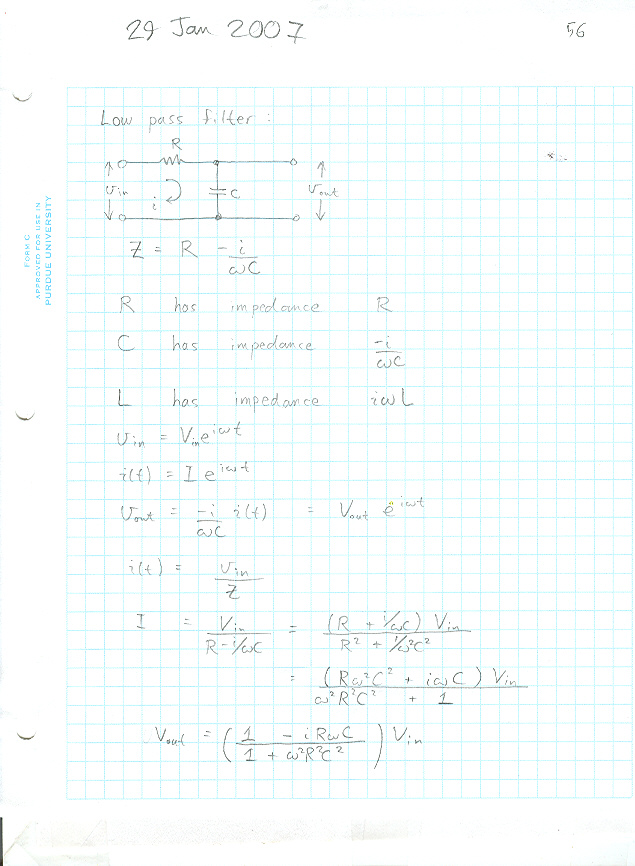 29 Jan 2007
56
FORM C
APPROVED FOR USE IN
PURDUE UNIVERSITY
Low pass filter :
R
vin i C vout
Z = R - i/ωC
R has impedance R
C has impedance -i/ωC
L has impedance iωL
vin = Vin e^iωt
i(t) = I e^iωt
vout = -i/ωC i(t) = Vout e^iωt
i(t) = vin/Z
I = Vin/(R - i/ωC) = (R + i/ωC) Vin/(R² + 1/ω²C²)
= (Rω²C² + iωC) Vin/(ω²R²C² + 1)
Vout = ((1 - iRωC)/(1 + ω²R²C²)) Vin